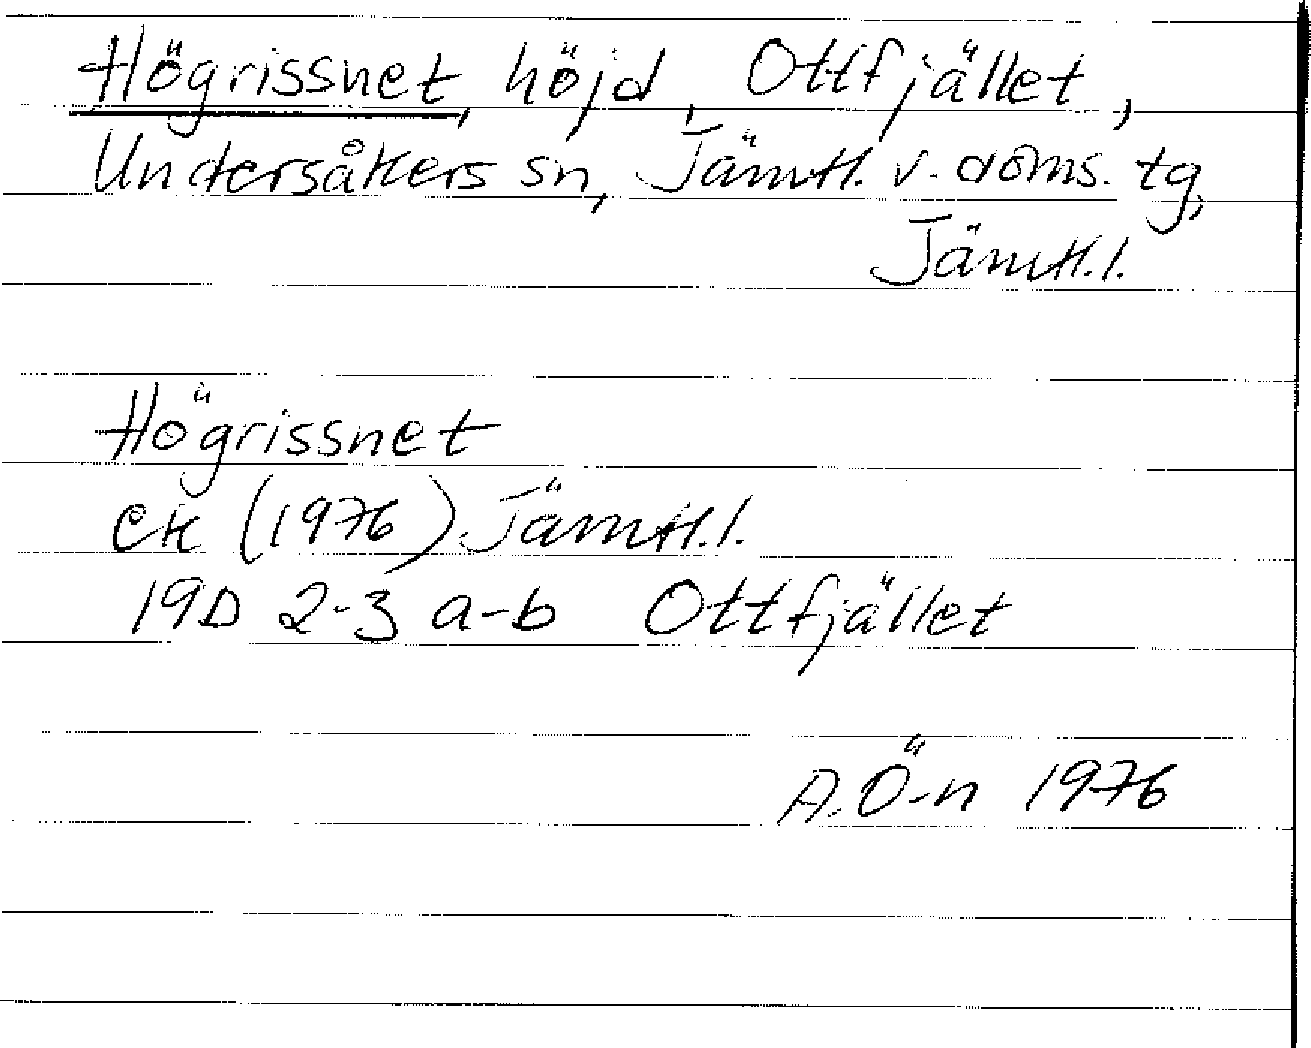 Högrissnet, höjd, Ottfjället,
Undersåkers sn, Jämtl. v. doms. tg,
Jämtl.l.
Högrissnet
ek (1976) Jämtl.l.
19D 2-3 a-b Ottfjället
A.Ö-n 1976